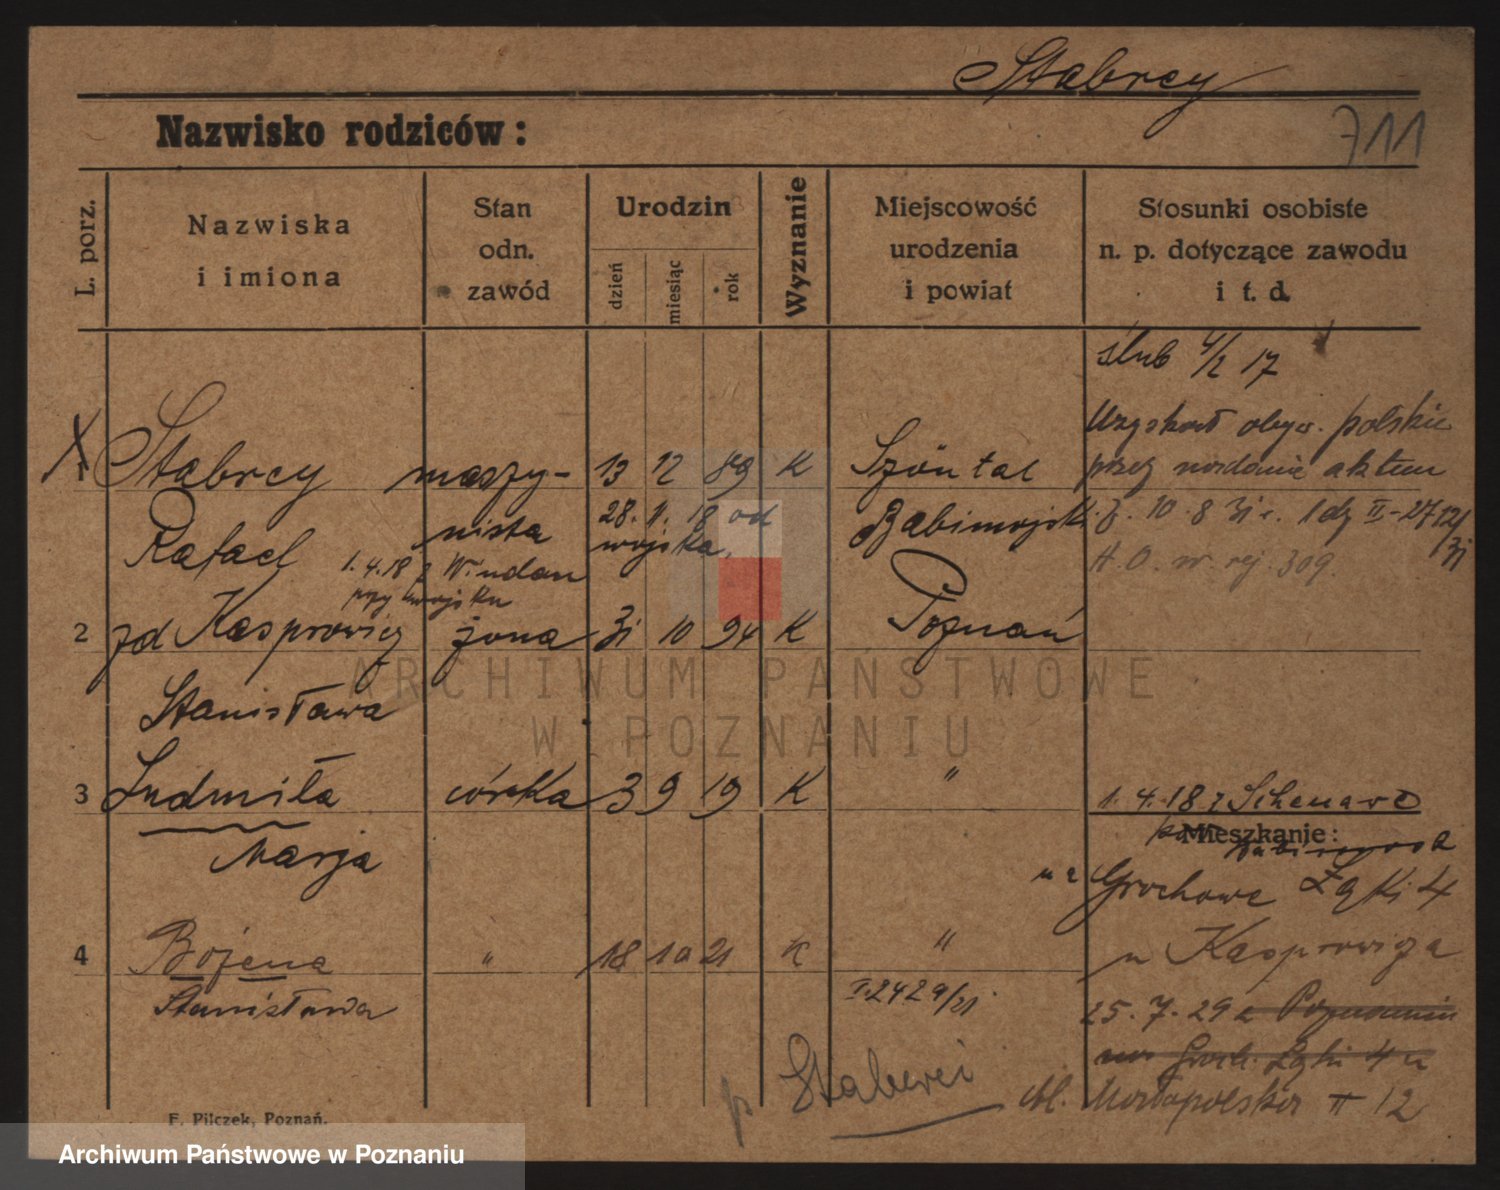 Stabrey
Nazwisko rodziców:
711
L. porz.
Nazwiska
i imiona
Stan
odn.
zawód
Urodzin
dzień
miesiąc
rok
Wyznanie
Miejscowość
urodzenia
i powiat
Stosunki osobiste
n. p. dotyczące zawodu
i t. d.
ślub 4/2 17
Uzyskał obyw. polskie
1 Stabrey maszy- 13 12 89 K Szöntal
przez nadanie aktem
Rafael nista 28. 11. 18 od Babimojski
wojska,
z. 10. 8 31 r. l dz II-2712/31
1.4.18 z Windau
przy wojsku
A. O. nr. rej. 309.
2 zd Kasprowicz żona 31 10 94 K Poznań
Stanisława
3 Ludmiła córka 3 9 19 K "
1. 4. 18 z Schenawe
Mieszkanie:
Marja
na Grochowe Łąki 4
4 Bożena " 18 10 21 K "
u Kasprowicza
Stanisława
I.2429/21
25. 7. 29 z Poznania
Groch. Łąki 4 u
p Staberei
Małopolska 12
F. Pilczek, Poznań.
ARCHIWUM PAŃSTWOWE
W POZNANIU
Archiwum Państwowe w Poznaniu